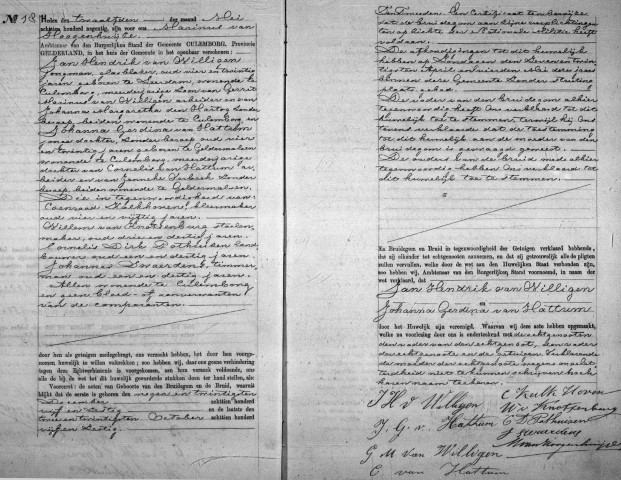 No 18
Heden den twaalfden der maand Mei
achttien honderd negentig, zijn voor ons Marinus van
Hoogenhuijze
Ambtenaar van den Burgerlijken Stand der Gemeente CULEMBORG, Provincie
GELDERLAND, in het huis der Gemeente in het openbaar verschenen:
Jan Hendrik van Willigen
jongman, glasblazer, oud zes en twintig
jaren geboren te Leerdam, wonende te
Culemborg, meerderjarige zoon van Gerrit
Marinus van Willigen arbeider en van
Johanna Margaretha den Hartog zonder
beroep, beiden wonende te Culemborg en
Johanna Gerdina van Hattum
jonge dochter, zonder beroep oud vier
en twintig jaren geboren te Geldermalsen
wonende te Culemborg, meerderjarige
dochter van Cornelis van Hattum ar-
beider en van Jenneke Verbeek zonder
beroep, beiden wonende te Geldermalsen.
Die in tegenwoordigheid van:
Coenraad Kulkhoven, kleermaker
oud vier en vijftig jaren.
Willem van Knotsenburg stoelen-
maker, oud drie en dertig jaren.
Cornelis Dirk Pothuizen land-
bouwer oud een en dertig jaren.
Johannes Zwaerdens, timmer-
man oud een en dertig jaren.
Allen wonende te Culemborg
en geen bloed- of aanverwanten
van de comparanten.
door hen als getuigen medegebragt, ons verzocht hebben, het door hen voorge-
nomen huwelijk te willen voltrekken; zoo hebben wij, daar ons geene verhindering
tegen deze Echtverbintenis is voorgekomen, aan hun verzoek voldoende, ons
alle de bij de wet tot dit huwelijk gevorderde stukken doen ter hand stellen, als:
Vooreerst: de acten van Geboorte van den Bruidegom en de Bruid, waaruit
blijkt dat de eerste is geboren den negen en twintigsten
December achttien honderd
vijf en zestig en de laatste den
twee en twintigsten October achttien honderd
vijf en zestig.
Ten tweeden. Een Certificaat ten bewijze
dat de Bruidegom aan zijne verpligtingen
ten opzichte der Nationale Militie heeft
voldaan.
De afkondigingen tot dit huwelijk
hebben op Zondagen den zeven en twin-
tigsten April en vierden Mei dezes jaars
binnen deze Gemeente zonder stuiting
plaats gehad.
De vader van den Bruidegom alhier
tegenwoordig heeft Ons verklaard tot dit
huwelijk toe te stemmen, terwijl hij Ons
tevens verklaarde dat de toestemming
tot dit huwelijk aan de moeder van den
bruidegom is gevraagd geweest.
De ouders van de bruid mede alhier
tegenwoordig hebben Ons verklaard tot
dit huwelijk toe te stemmen.
En Bruidegom en Bruid in tegenwoordigheid der Getuigen verklaard hebbende,
dat zij elkander tot echtgenooten aannemen, en dat zij getrouwelijk alle de pligten
zullen vervullen, welke door de wet aan den Huwelijken Staat verbonden zijn,
zoo hebben wij, Ambtenaar van den Burgerlijken Stand voornoemd, in naam der
wet verklaard, dat
Jan Hendrik van Willigen
en
Johanna Gerdina van Hattum
door het Huwelijk zijn vereenigd. Waarvan wij deze acte hebben opgemaakt,
welke na voorlezing door ons is onderteekend met de echtgenooten
den vader van den echtgenoot, den vader
der echtgenoote en de getuigen. Verklarende
de moeder der echtgenoote wegens ongeletterdheid
niet te kunnen schrijven
haren naam teekenen.
J H v Willigen
J. G. v. Hattum
G M van Willigen
C van Hattum
C Kulk Hoven
W v Knotsenburg
C D Pothuizen
J Zwaerdens